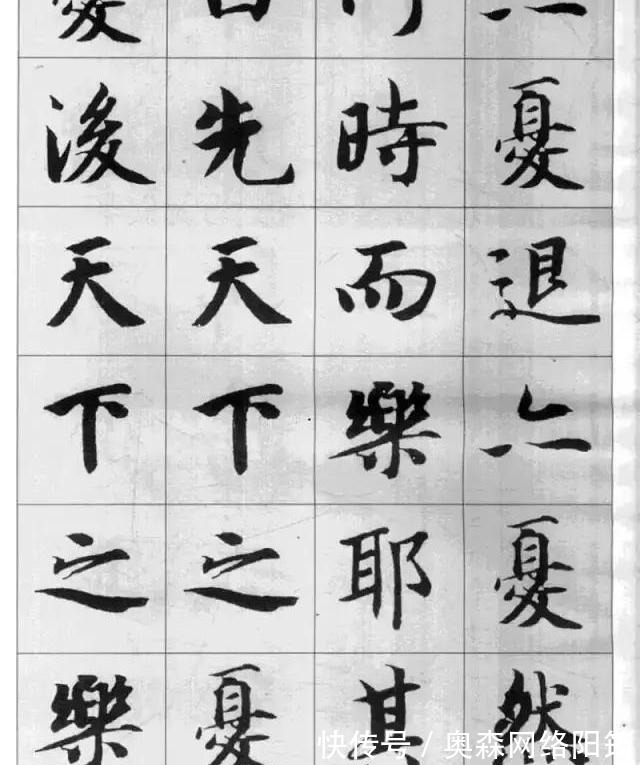 憂退亦憂然
時而樂耶其
先天下之憂
憂後天下之樂
快传号 / 奥森网络阳